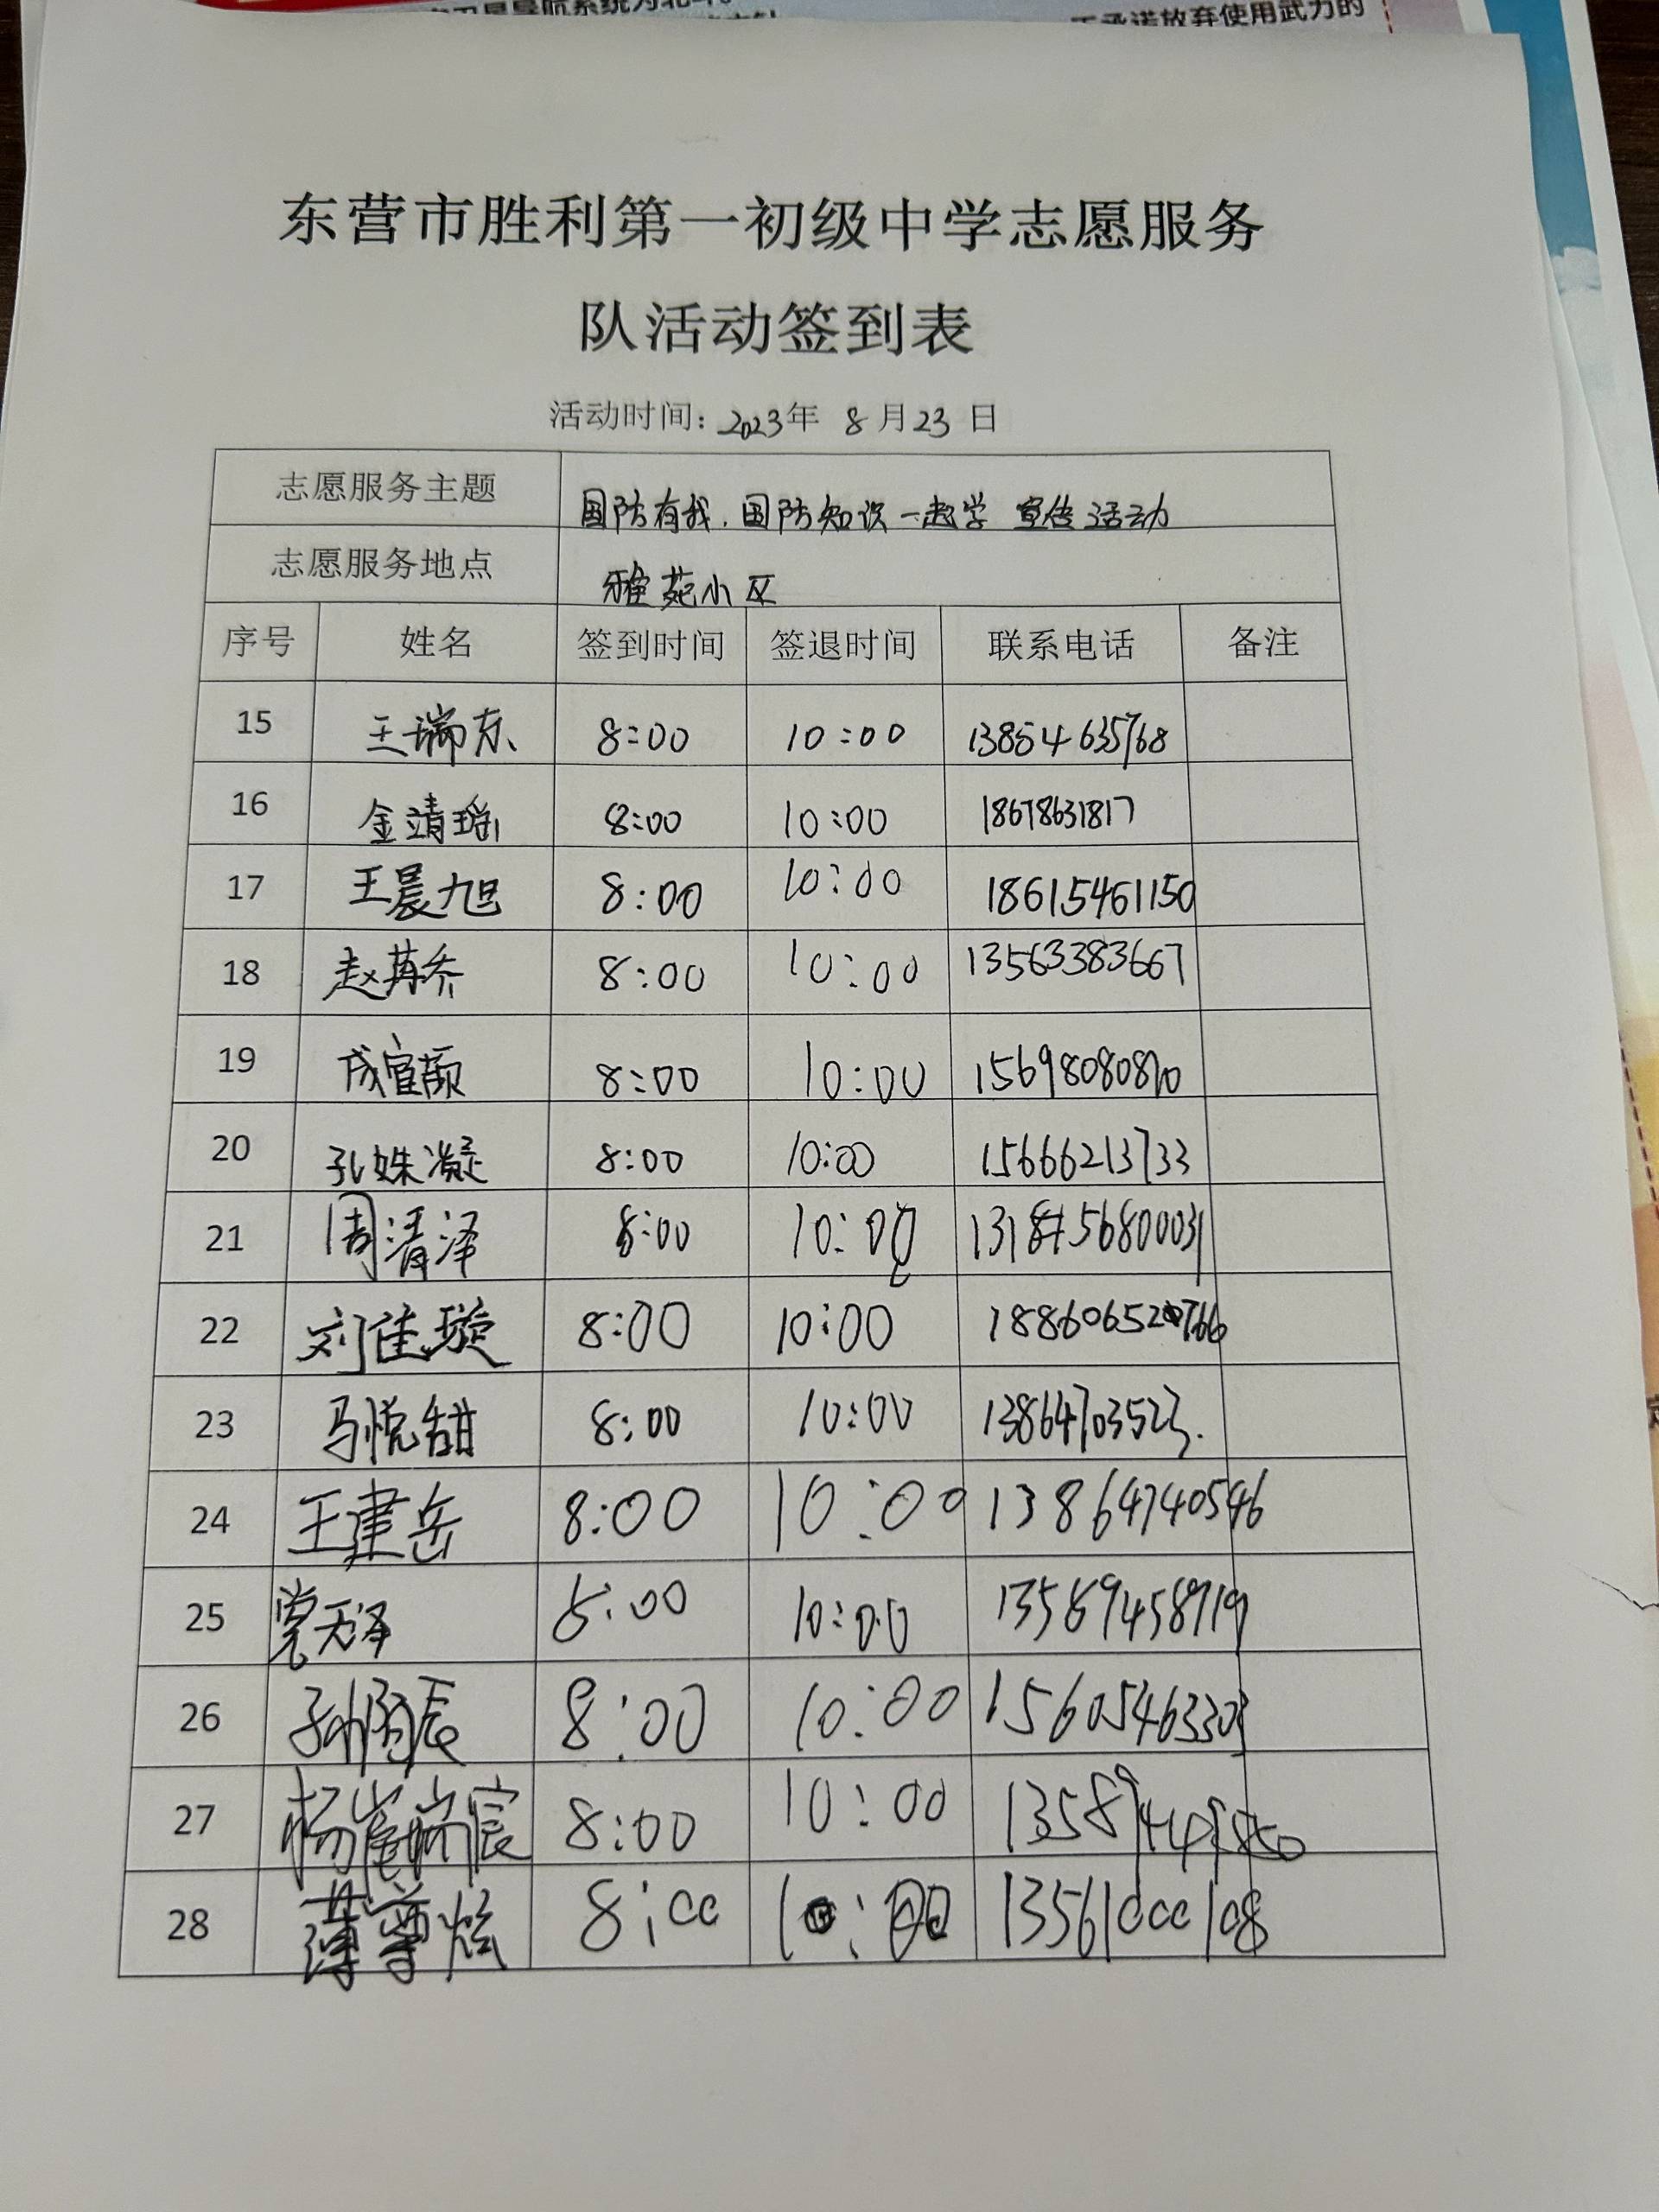 卫星导航系统为北斗
承诺放弃使用武力的
东营市胜利第一初级中学志愿服务
队活动签到表
活动时间：2023年 8月23日
志愿服务主题 国防有我，国防知识一起学 宣传活动
志愿服务地点 雅苑小区
序号 姓名 签到时间 签退时间 联系电话 备注
15 王瑞东 8:00 10:00 13854635768
16 金靖瑶 8:00 10:00 18678631817
17 王晨旭 8:00 10:00 18615461150
18 赵苒乔 8:00 10:00 13563383667
19 成宜颉 8:00 10:00
20 孔姝凝 8:00 10:00 15666213733
21 周清泽 8:00 10:00
22 刘佳璇 8:00 10:00
23 马悦甜 8:00 10:00 13864703523.
24 王建岳 8:00 10:00 13864740546
25 党天泽 8:00 10:00 13589458719
26 孙雨辰 8:00 10:00 15605463303
27 杨崔瑞宸 8:00 10:00
28 薄尊炫 8:00 10:00 13561000108